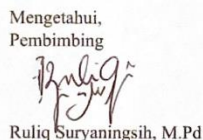 Mengetahui,
Pembimbing
Ruliq Suryaningsih, M.Pd